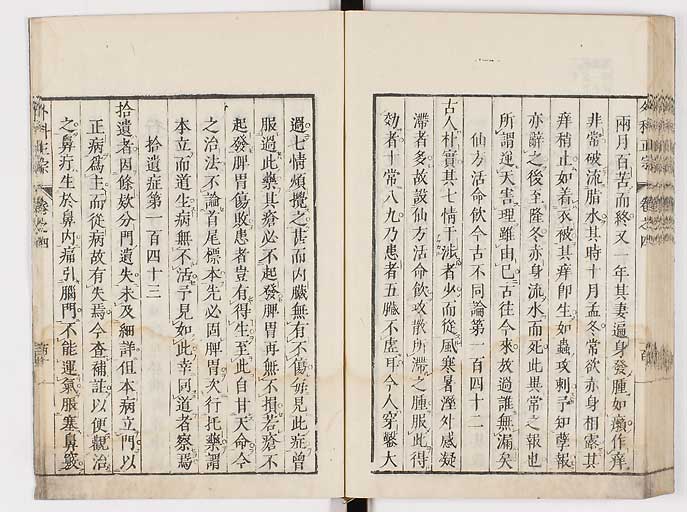 兩月百苦而終又一年其妻遍身發腫如癩作痒
非常破流脂水其時十月孟冬常欲赤身相露其
痒稍止如着衣被其痒即生如蟲攻刺予知孽報
亦辭之後至隆冬亦身流水而死此異常之報也
所謂逆天害理雖由己古往今來放過誰無漏矣
仙方活命飲今古不同論第一百四十二
古人朴實其七情干涉者少而從風寒暑溼外感凝
滯者多故設仙方活命飲攻散所滯之腫服此得
効者十常八九乃患者五臟不虛耳今人穿鑿太
過七情煩攪之甚而內臟無有不傷每見此症曾
服過此藥其瘡必不起發脾胃再無不損若瘡不
起發脾胃傷敗患者豈有得生至此自甘天命今
之治法不論首尾標本先必固脾胃次行托藥謂
本立而道生病無不活予見如此幸同道者察焉
拾遺症第一百四十三
拾遺者因條欵分門遺失未及細詳但本病立門以
正病爲主而從病故有失焉今查補註以便觀治
之鼻疔生於鼻內痛引腦門不能運氣脹塞鼻竅
外科正宗
卷之四
外科正宗
卷之四